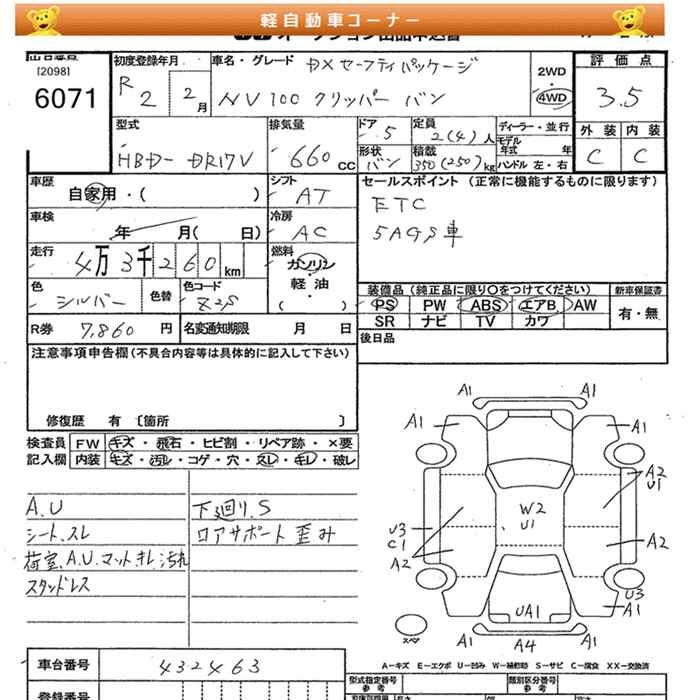 軽自動車コーナー
オークション出品申込書
出品番号
[2098]
6071
初度登録年月
R2 2月
車名・グレード
DXセーフティパッケージ
NV100 クリッパー バン
2WD
・
4WD
評価点
3.5
外装 内装
C C
型式
HBD- DR17V
排気量
660 CC
ドア 5
形状 バン
定員 2(4)人
積載 350(250)kg
ディーラー・並行
モデル年式 年
ハンドル 左・右
車歴
自家用・( )
シフト
AT
車検
年 月( 日)
冷房
AC
走行
4万3千260km
燃料
ガソリン
軽油
・
( )
色
シルバー
色替
色コード
Z2S
R券 7,860 円
名変通知期限 月 日
セールスポイント(正常に機能するものに限ります)
ETC
5AGS車
装備品(純正品に限り○をつけてください)
PS PW ABS エアB AW
SR ナビ TV カワ
新車保証書
有・無
後日品
注意事項申告欄(不具合内容等は具体的に記入して下さい)
修復歴 有 〔箇所 〕
検査員 FW キズ・飛石・ヒビ割・リペア跡・×要
記入欄 内装 キズ・汚レ・コゲ・穴・スレ・キレ・破レ
A.U
シート.スレ
荷室.A.U.マットキレ汚れ
スタッドレス
下廻り.S
ロアサポート 歪み
A1 A1
A1 A1
A2
U1
W2
U1
U3
C1
A2
A2
U3
A1
UA1
A1
A4
A1
スペア
A-キズ E-エクボ U-凹み W-補修跡 S-サビ C-腐食 XX-交換済
車台番号 432463
登録番号
型式指定番号
参考
類別区分番号
参考